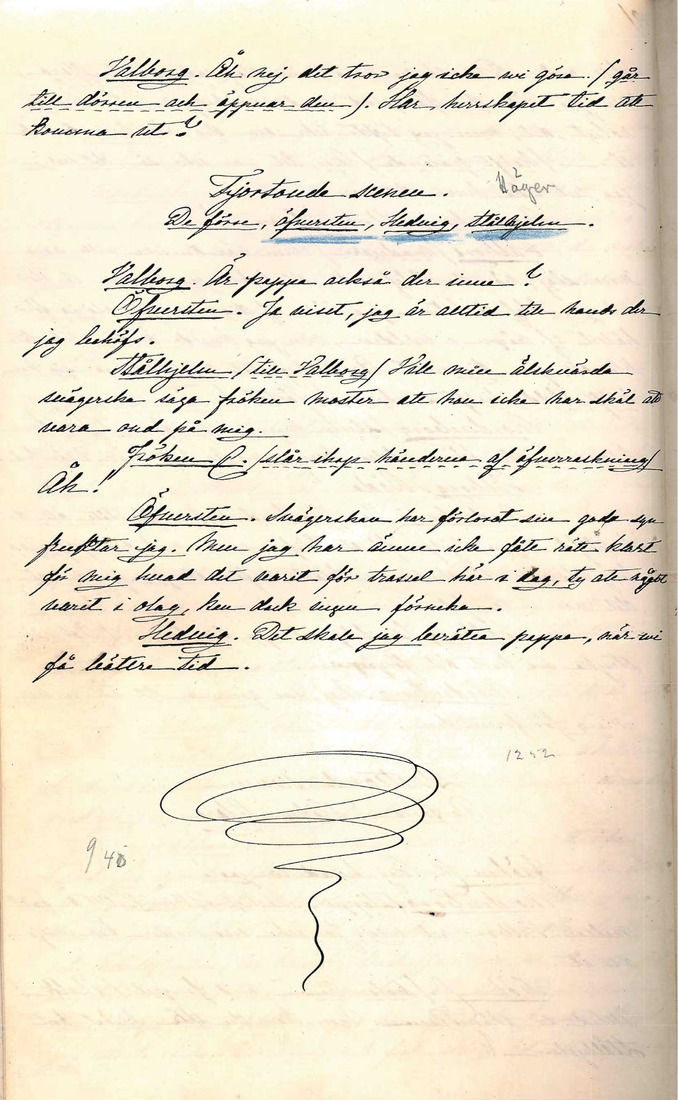 Valborg. Åh nej, det tror jag icke vi göra. (går
till dörren och öppnar den). Har herrskapet tid att
komma ut?
Fjortonde scenen. Höger
De förre, öfversten, Hedvig, Stålhjelm.
Valborg. Är pappa också der inne?
Öfversten. Ja visst, jag är alltid till hands der
jag behöfs.
Stålhjelm (till Valborg) Vill min älskvärda
svägerska säga fröken moster att hon icke har skäl att
vara ond på mig.
Fröken C. (slår ihop händerna af öfverraskning)
Åh!
Öfversten. Svägerskan har förlorat sin goda syn
fruktar jag. Men jag har ännu icke fått rätt klart
för mig hvad det varit för trassel här i dag, ty att något
varit i olag, kan dock ingen förneka.
Hedvig. Det skall jag berätta pappa, när vi
få bättre tid.
12 52
9 45